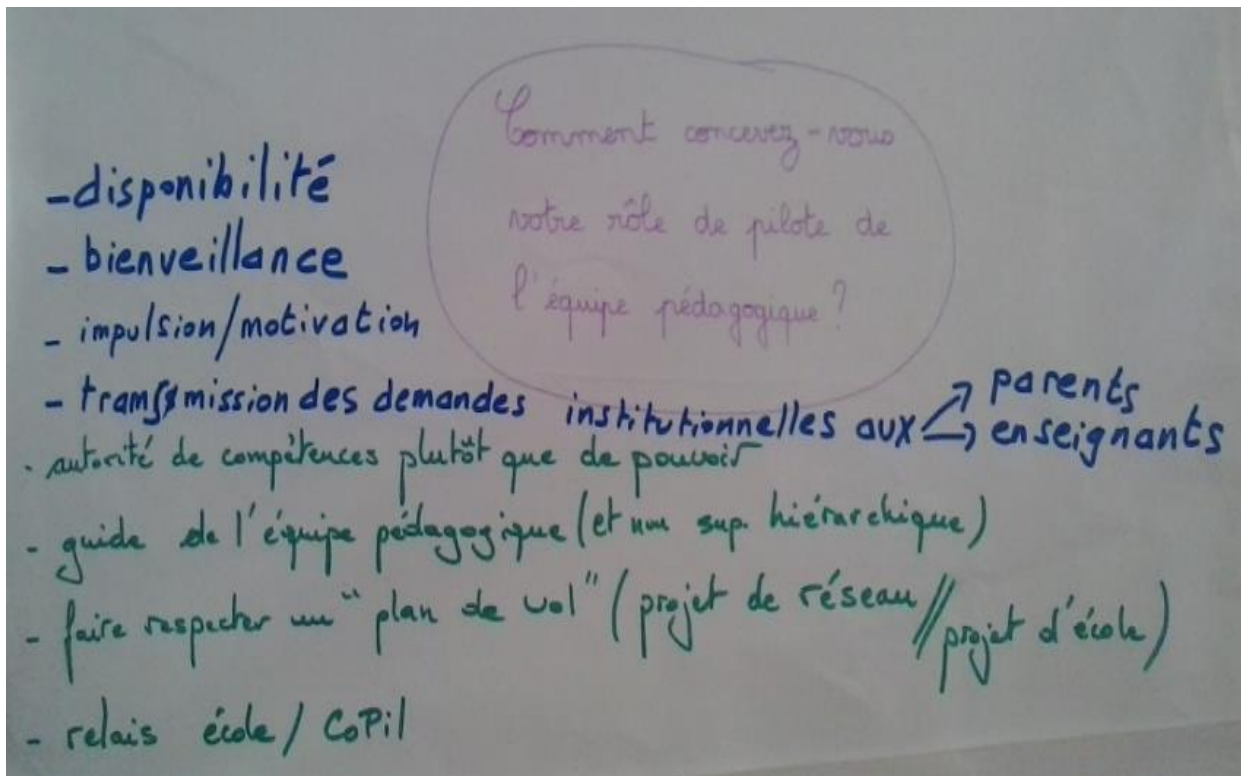 Comment concevez-vous
votre rôle de pilote de
l'équipe pédagogique ?
- disponibilité
- bienveillance
- impulsion/motivation
- transmission des demandes institutionnelles aux → parents
→ enseignants
- autorité de compétences plutôt que de pouvoir
- guide de l'équipe pédagogique (et non sup. hiérarchique)
- faire respecter un "plan de vol" (projet de réseau // projet d'école)
- relais école / CoPil